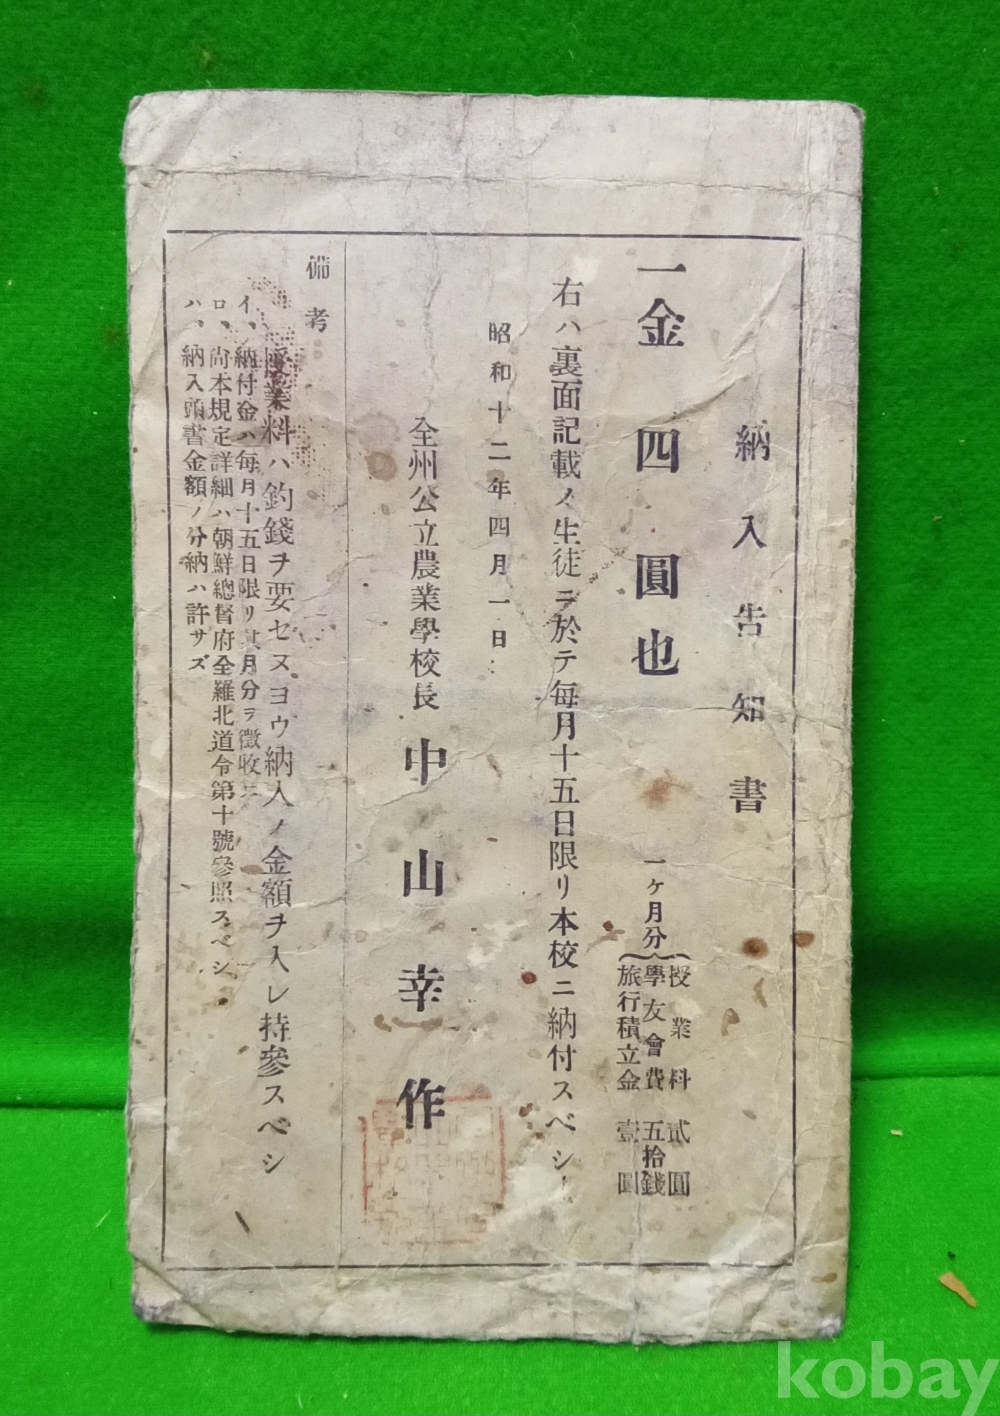 納入告知書
一金四圓也
一ケ月分
授業料 貳圓
學友會費 五拾錢
旅行積立金 壹圓
右ハ裏面記載ノ生徒ニ於テ每月十五日限リ本校ニ納付スベシ
昭和十二年四月一日
全州公立農業學校長 中山幸作
備考
授業料ハ釣錢ヲ要セヌヨウ納入ノ金額ヲ入レ持參スベシ
イ、納付金ハ每月十五日限リ其月分ヲ徵收ス
ロ、尙本規定詳細ハ朝鮮總督府全羅北道令第十號參照スベシ
ハ、納入頭書金額ノ分納ハ許サズ
kobay